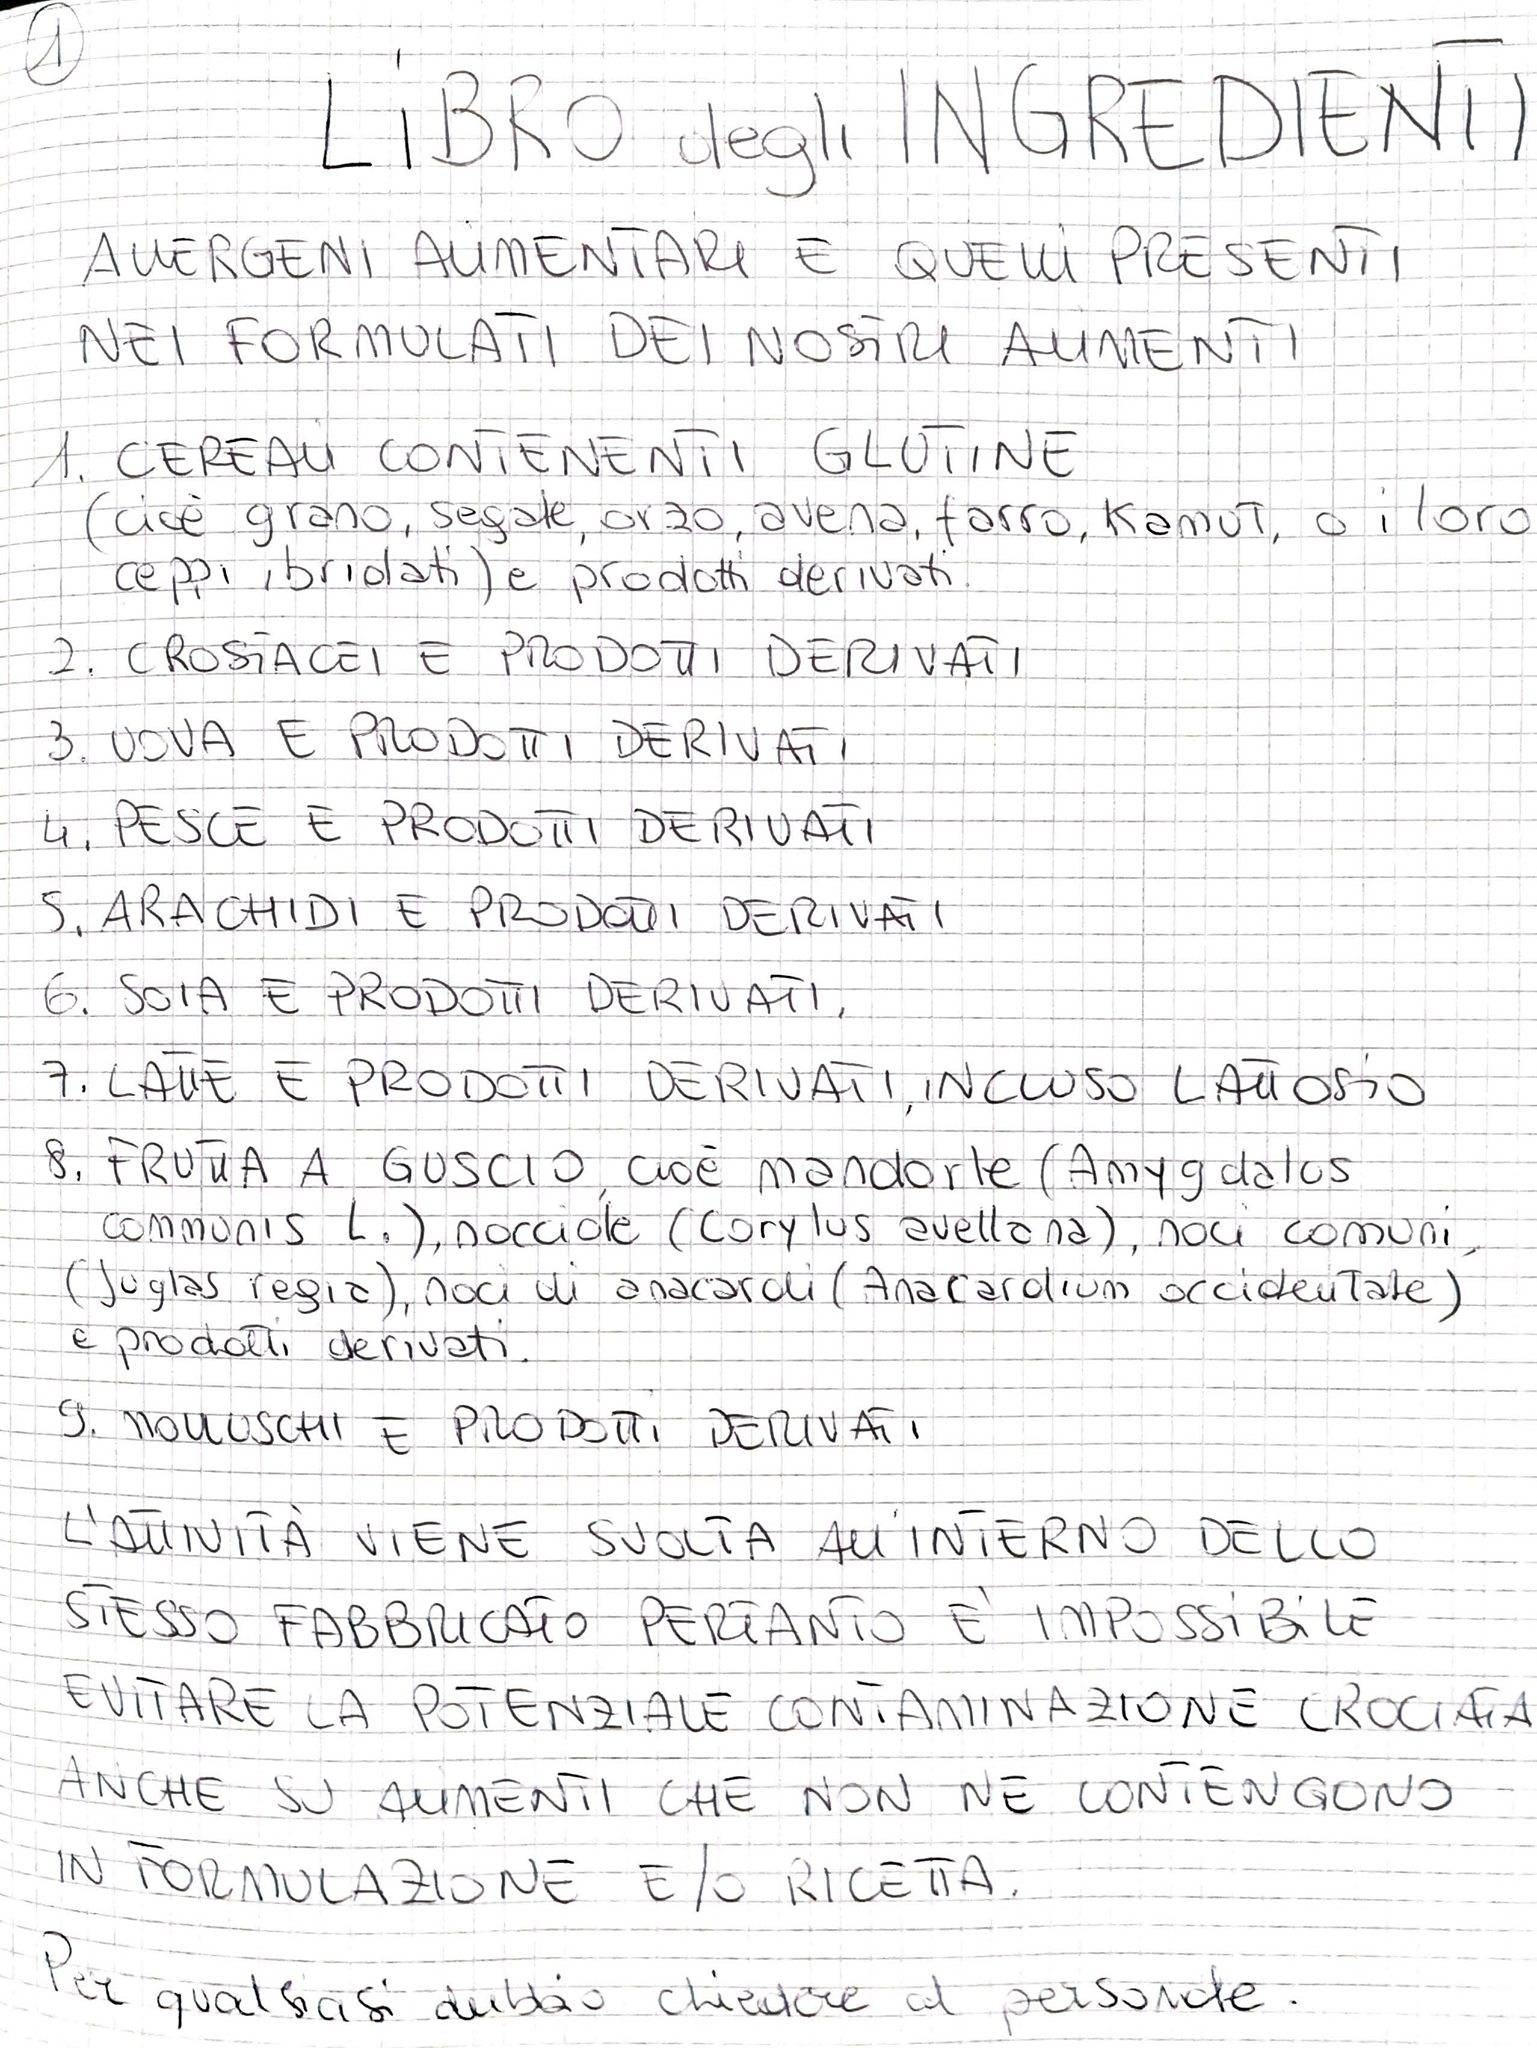 1
LIBRO degli INGREDIENTI
ALLERGENI ALIMENTARI E QUELLI PRESENTI
NEI FORMULATI DEI NOSTRI ALIMENTI
1. CEREALI CONTENENTI GLUTINE
(cioè grano, segale, orzo, avena, farro, Kamut, o i loro
ceppi ibridati) e prodotti derivati.
2. CROSTACEI E PRODOTTI DERIVATI
3. UOVA E PRODOTTI DERIVATI
4. PESCE E PRODOTTI DERIVATI
5. ARACHIDI E PRODOTTI DERIVATI
6. SOIA E PRODOTTI DERIVATI.
7. LATTE E PRODOTTI DERIVATI, INCLUSO LATTOSIO
8. FRUTTA A GUSCIO, cioè mandorle (Amygdalus
communis L.), nocciole (Corylus avellana), noci comuni,
(Juglas regia), noci di anacardi (Anacardium occidentale)
e prodotti derivati.
9. MOLLUSCHI E PRODOTTI DERIVATI
L'ATTIVITÀ VIENE SVOLTA ALL'INTERNO DELLO
STESSO FABBRICATO PERTANTO E' IMPOSSIBILE
EVITARE LA POTENZIALE CONTAMINAZIONE CROCIATA
ANCHE SU ALIMENTI CHE NON NE CONTENGONO
IN FORMULAZIONE E/O RICETTA.
Per qualsiasi dubbio chiedere al personale.